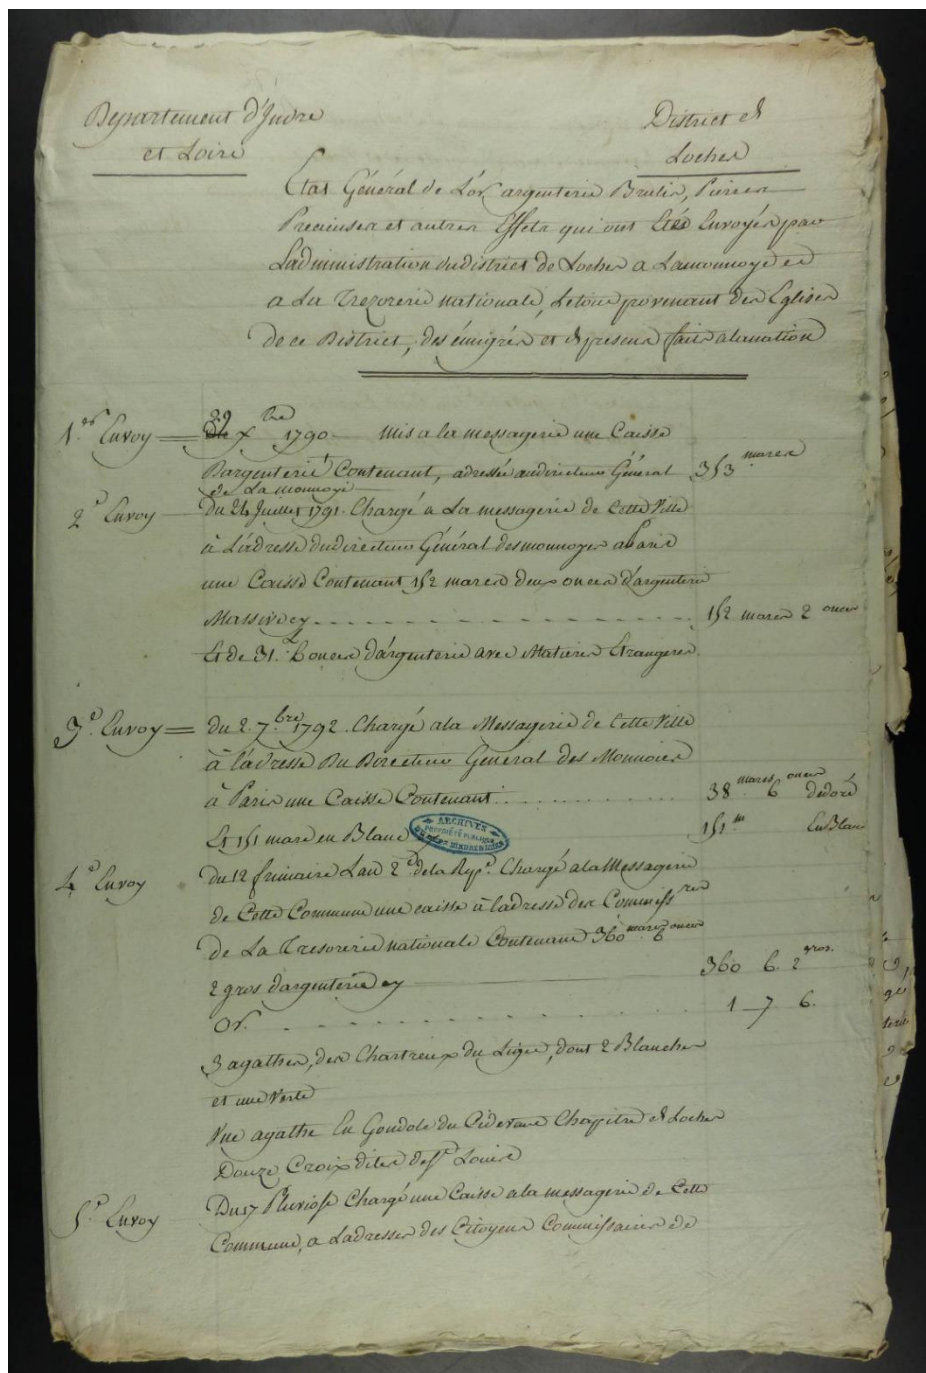 Departement d'Indre
et Loire
District de
Loches
Etat Général de L'or, argenterie Brulée, Pierres
Precieuses et autres Effets qui ont Etés Envoyés par
Ladministration du district de Loches a Lamonnoye et
a La Trezorerie nationale, Letout provenant des Eglises
de ce District, des émigrés et de presens faits alanation
1.er Envoy
Xbre 1790 — Mis a la messagerie une Caisse
Dargenterie Contenant, adressée audirecteur Général 353 marcs
de La monnoyé
2e Envoy
Du 24 Juillet 1791. Chargé a La messagerie de Cette Ville
à L'adresse dudirecteur Général des monnoyes a Paris
une Caisse Contenant 152 marcs deux onces d'argenterie
Massive cy 152 marcs 2 onces
Et de 31. onces d'argenterie avec Matieres Etrangeres
3e. Envoy
du 2. 7.bre 1792. Chargé ala Messagerie de Cette Ville
à l'adresse Du Directeur General des Monnoies
à Paris une Caisse Contenant 38 marcs 6 onces dedoré
Et 151 marc en Blanc 151 m EnBlanc
ARCHIVES
PROPRIÉTÉ PUBLIQUE
4e Envoy
du 12 frimaire Lan 2e. dela Rep.e Chargé ala Messagerie
de Cette Commune une caisse à ladresse des Commissres
de La Tresorerie nationale Contenant 360 marcs 6 onces
2 gros dargenterie cy 360 6. 2 gros.
Or. 1 7 6.
3 agathes, des Chartreux du Ligét, dont 2 Blanches
et une Verte
Une agathe En Gondole du Cidevant Chapitre de Loches
Douze Croix dites de St Louis
5e. Envoy
Du 17 Pluviose Chargé une Caisse ala messagerie de Cette
Commune, a Ladresse des Citoyens Commissaires de